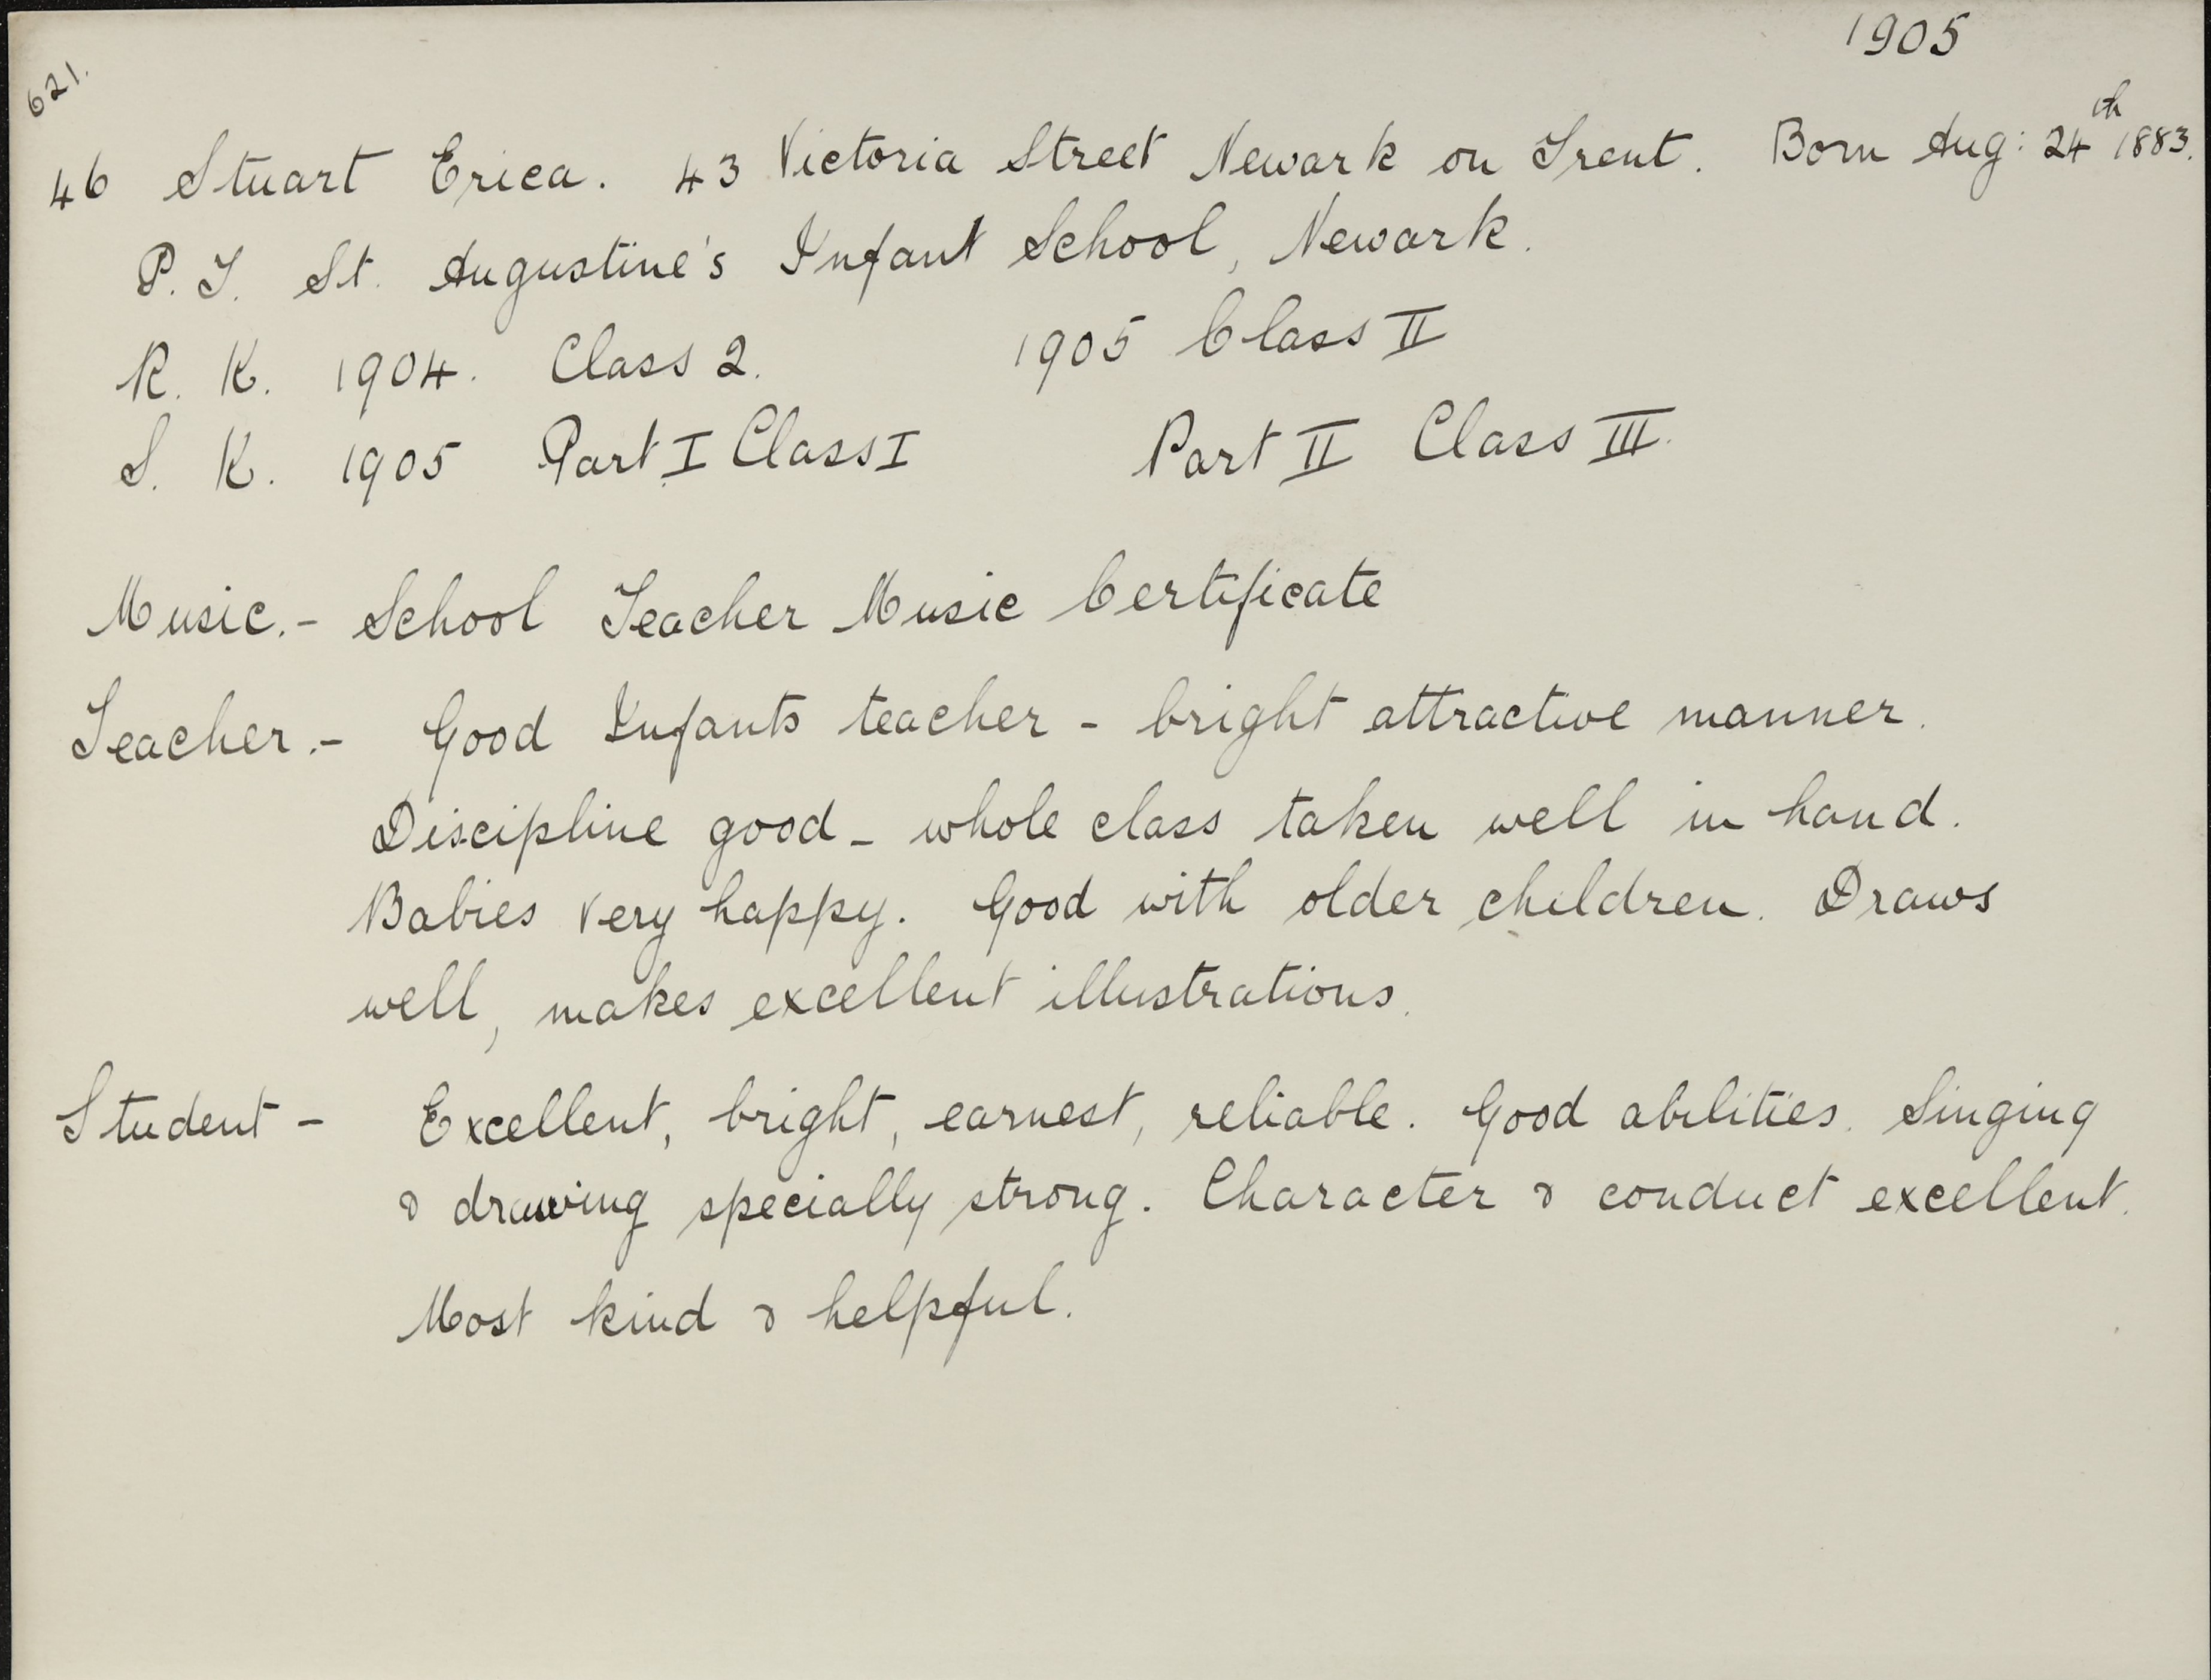 1905
621.
46 Stuart Erica. 43 Victoria Street Newark on Trent. Born Aug: 24th 1883.
P. T. St. Augustine's Infant School, Newark.
R. K. 1904. Class 2. 1905 Class II
S. K. 1905 Part I Class I Part II Class III.
Music.- School Teacher Music Certificate
Teacher.- Good Infants teacher - bright attractive manner.
Discipline good - whole class taken well in hand.
Babies very happy. Good with older children. Draws
well, makes excellent illustrations.
Student - Excellent, bright, earnest, reliable. Good abilities. Singing
& drawing specially strong. Character & conduct excellent.
Most kind & helpful.